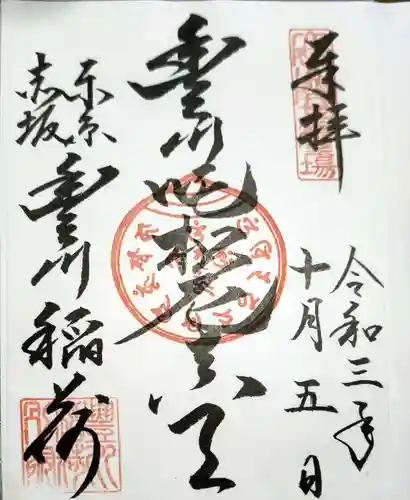 奉拝
令和三年
十月五日
豊川吒枳尼真天
東京
赤坂
豊川稲荷